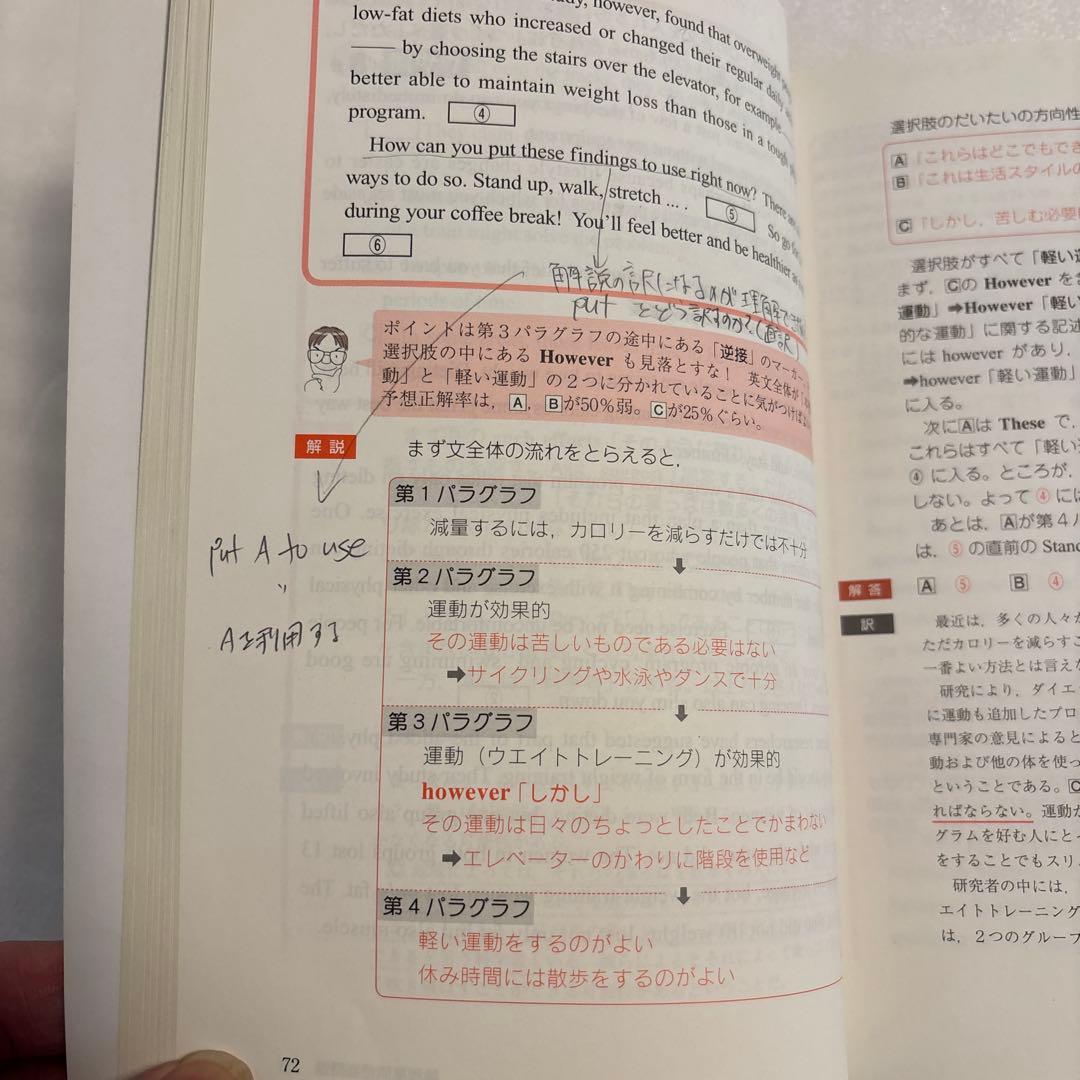 , however, found that overweight
low-fat diets who increased or changed their regular daily
—— by choosing the stairs over the elevator, for example
better able to maintain weight loss than those in a tough
program. ④
How can you put these findings to use right now? There
ways to do so. Stand up, walk, stretch ... . ⑤ So go
during your coffee break! You'll feel better and be healthier
⑥
解説の訳になるのが理解で
put をどう訳すのか?(直訳)
ポイントは第3パラグラフの途中にある「逆接」のマーカー
選択肢の中にある However も見落とすな! 英文全体が
動」と「軽い運動」の2つに分かれていることに気がつけば
予想正解率は,A,Bが50%弱。Cが25%ぐらい。
解説
まず文全体の流れをとらえると,
第1パラグラフ
減量するには,カロリーを減らすだけでは不十分
第2パラグラフ
運動が効果的
その運動は苦しいものである必要はない
➡サイクリングや水泳やダンスで十分
第3パラグラフ
運動(ウエイトトレーニング)が効果的
however「しかし」
その運動は日々のちょっとしたことでかまわない
➡エレベーターのかわりに階段を使用など
第4パラグラフ
軽い運動をするのがよい
休み時間には散歩をするのがよい
put A to use
〃
Aを利用する
72
選択肢のだいたいの方向性
A「これらはどこでもでき
B「これは生活スタイルの
C「しかし,苦しむ必要
選択肢がすべて「軽い運
まず,Cの However を
運動」➡However「軽い
的な運動」に関する記述
には however があり,
➡however「軽い運動」
に入る。
次にAは These で,
これらはすべて「軽い運
④に入る。ところが,
しない。よって④には
あとは,Aが第4パ
は,⑤の直前の Stand
解答
A ⑤ B ④
訳
最近は,多くの人々が
ただカロリーを減らすこ
一番よい方法とは言えな
研究により,ダイエ
に運動も追加したプロ
専門家の意見によると
動および他の体を使っ
ということである。C
ればならない。運動が
グラムを好む人にと
をすることでもスリ
研究者の中には,
エイトトレーニング
は,2つのグループ